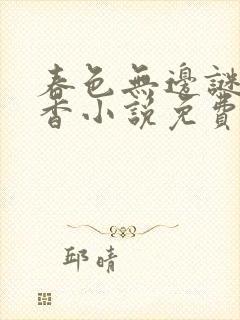 春色無邊謎
香小說免費
邱晴